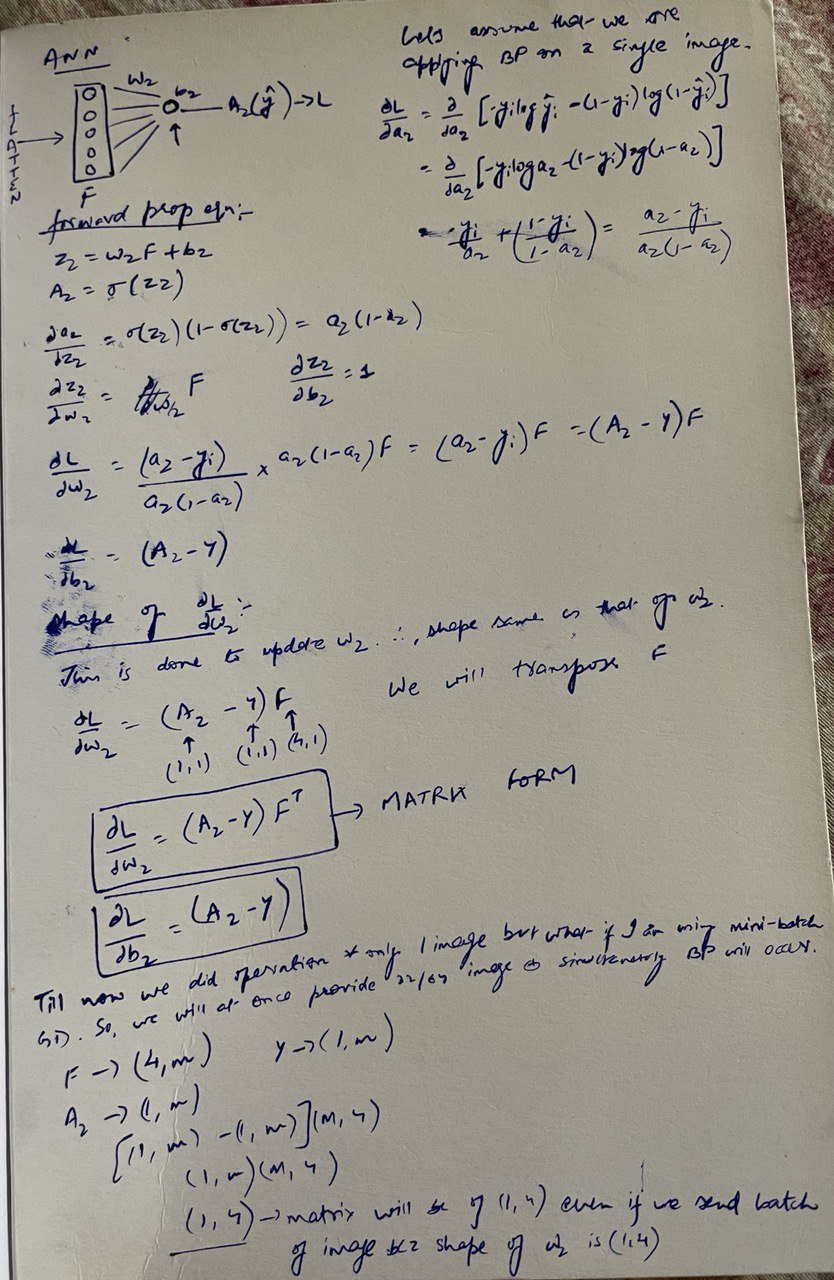 Lets assume that we are
applying BP on a single image.
ANN
W₂
b₂
A₂(ŷ) → L
FLATTEN
F
∂L/∂a₂ = ∂/∂a₂ [-yᵢlog ŷᵢ - (1-yᵢ)log(1-ŷᵢ)]
= ∂/∂a₂ [-yᵢloga₂ - (1-yᵢ)log(1-a₂)]
= -yᵢ/a₂ + (1-yᵢ/1-a₂) = a₂-yᵢ/a₂(1-a₂)
forward prop eqn:-
z₂ = w₂F + b₂
A₂ = σ(z₂)
∂a₂/∂z₂ = σ(z₂)(1-σ(z₂)) = a₂(1-a₂)
∂z₂/∂w₂ = F ∂z₂/∂b₂ = 1
∂L/∂w₂ = (a₂-yᵢ)/a₂(1-a₂) × a₂(1-a₂)F = (a₂-yᵢ)F = (A₂-Y)F
∂L/∂b₂ = (A₂-Y)
shape of ∂L/∂w₂:-
This is done to update w₂ ∴, shape same as that of w₂.
We will transpose F
∂L/∂w₂ = (A₂ - Y)F
↑ ↑ ↑
(1,1) (1,1) (4,1)
∂L/∂w₂ = (A₂-Y)Fᵀ → MATRIX FORM
∂L/∂b₂ = (A₂-Y)
Till now we did operation * only 1 image but what if I am using mini-batch
GD. So, we will at once provide 32/64 image & simultaneously BP will occur.
F → (4,m) Y → (1,m)
A₂ → (1,m)
[(1,m) - (1,m)](m,4)
(1,m)(m,4)
(1,4) → matrix will be of (1,4) even if we send batch
of image bcz shape of w₂ is (1,4)